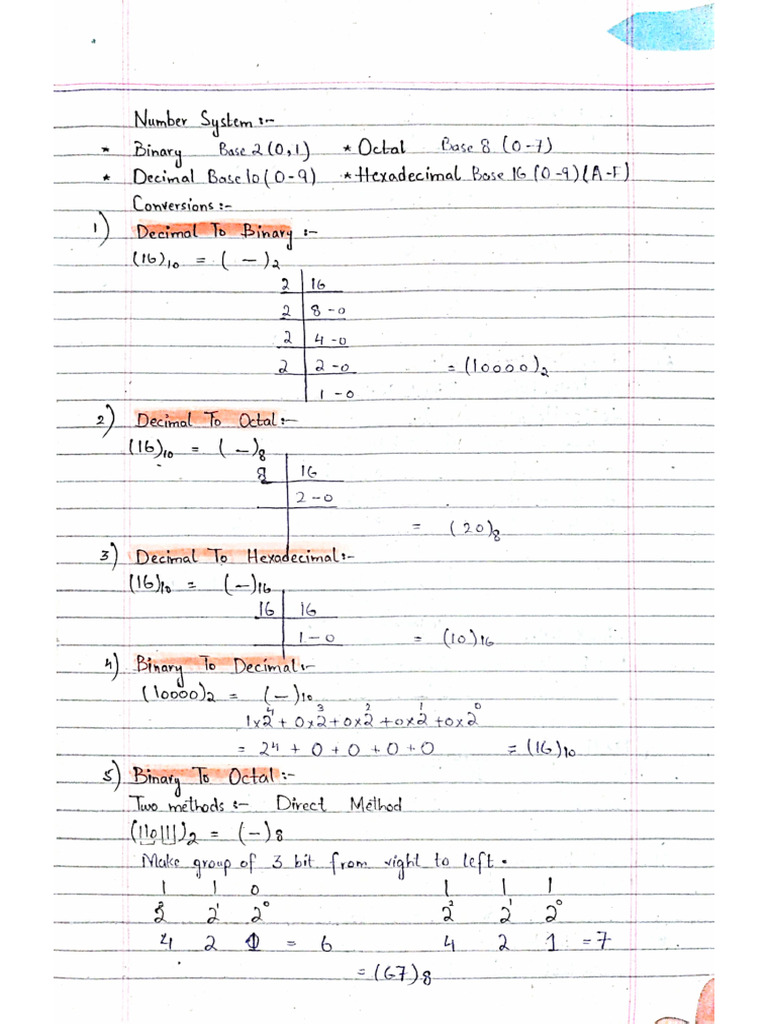 Number System :-
* Binary Base 2 (0,1) * Octal Base 8 (0-7)
* Decimal Base 10 (0-9) * Hexadecimal Base 16 (0-9) (A-F)
Conversions :-
1) Decimal To Binary :-
(16)₁₀ = ( — )₂
2 | 16
2 | 8 - 0
2 | 4 - 0
2 | 2 - 0 = (10000)₂
1 - 0
2) Decimal To Octal :-
(16)₁₀ = ( — )₈
8 | 16
2 - 0
= (20)₈
3) Decimal To Hexadecimal :-
(16)₁₀ = ( — )₁₆
16 | 16
1 - 0 = (10)₁₆
4) Binary To Decimal :-
(10000)₂ = ( — )₁₀
1×2⁴ + 0×2³ + 0×2² + 0×2¹ + 0×2⁰
= 2⁴ + 0 + 0 + 0 + 0 = (16)₁₀
5) Binary To Octal :-
Two methods :- Direct Method
(110111)₂ = ( — )₈
Make group of 3 bit from right to left.
1 1 0 1 1 1
2² 2¹ 2⁰ 2² 2¹ 2⁰
4 2 1 = 6 4 2 1 = 7
= (67)₈